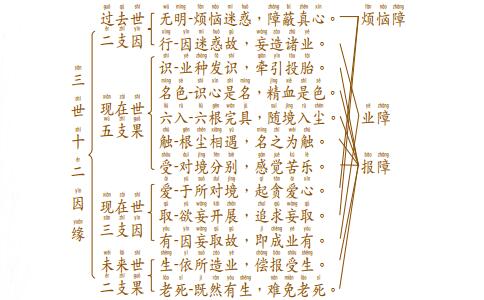 三世十二因缘
过去世二支因
无明-烦恼迷惑，障蔽真心。
行-因迷惑故，妄造诸业。
现在世五支果
识-业种发识，牵引投胎。
名色-识心是名，精血是色。
六入-六根完具，随境入尘。
触-根尘相遇，名之为触。
受-对境分别，感觉苦乐。
现在世三支因
爱-于所对境，起贪爱心。
取-欲妄开展，追求妄取。
有-因妄取故，即成业有。
未来世二支果
生-依所造业，偿报受生。
老死-既然有生，难免老死。
烦恼障
业障
报障